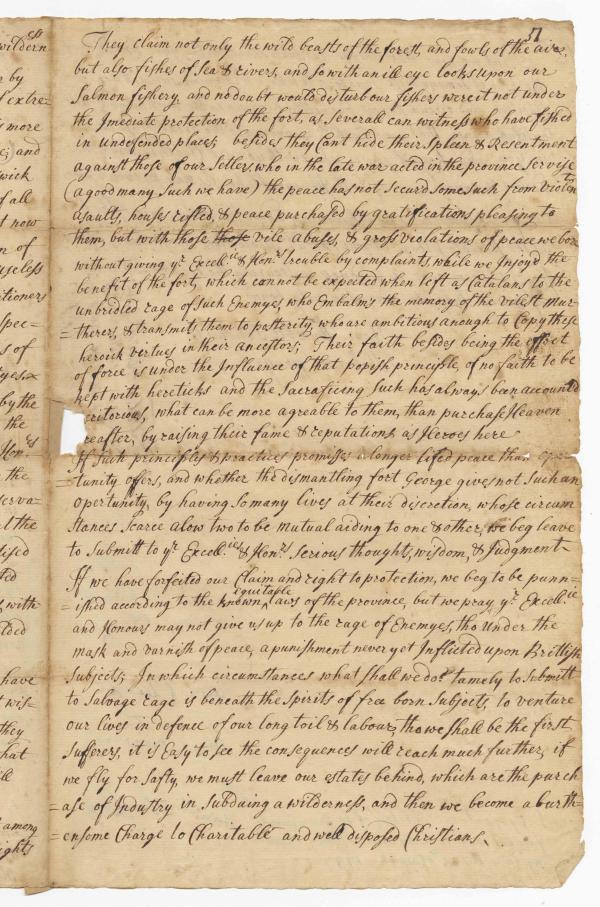 37
They claim not only the wild beasts of the forest, and fowls of the aire,
but also fishes of Sea & rivers, and so with an ill eye looks upon our
Salmon fishery, and no doubt would disturb our fishers were it not under
the Imediate protection of the fort, as Severall can witness who have fished
in undefended places; besides they Cant hide their Spleen & Resentment
against those of our Setlers, who in the late war acted in the province Servise
(a good many Such we have) the peace has not Secur'd some such from violen
asaults, houses rifled, & peace purchased by gratifications pleasing to
them, but with those those vile abuses, & gross violations of peace we bore
without giving yr. Excell:ie & Honrs. trouble by complaints, while we Injoy'd the
benefit of the fort, which cannot be expected when left as Catalans to the
unbridled rage of Such Enemyes, who Embalms the memory of the vilest mur-
=therers, & transmits them to pasterity, who are ambitious anough to Copy these
heroick virtues in their ancestors; Their faith besides being the effect
of force is under the Influence of that popish principle, of no faith to be
kept with hereticks and the Sacraficeing Such has always been accounted
eritorious, what can be more agreable to them, than purchase Heaven
reafter, by raising their fame & reputations, as Heroes here
If Such principles & practices promises a longer lifed peace than opor-
=tunity offers, and whether the dismantling fort George gives not Such an
opertunity, by having so many lives at their discretion, whose circum
Stances Scarce alow two to be mutual aiding to one & other, we beg leave
to Submitt to yr. Excell:ies & Honrs. Serious thoughts, wisdom, & Judgment.
If we have forfeited our Claim and right to protection, we beg to be punn=
=ished according to the known equitable laws of the province, but we pray, yr. Excell:ie
and Honours may not give us up to the rage of Enemyes, tho under the
mask and varnish of peace, a punishment never yet Inflicted upon Brittish
Subjects; In which circumstances what Shall we do? tamely to Submitt
to Salvage rage is beneath the Spirits of free born Subjects, to venture
our lives in defence of our long toil & labour, tho we Shall be the first
Sufferers, it is Easy to See the consequences will reach much further, if
we fly for Safty, we must leave our estates behind, which are the purch
=ase of Industry in Subduing a wilderness, and then we become a burth=
=ensome Charge to Charitable and well disposed Christians.